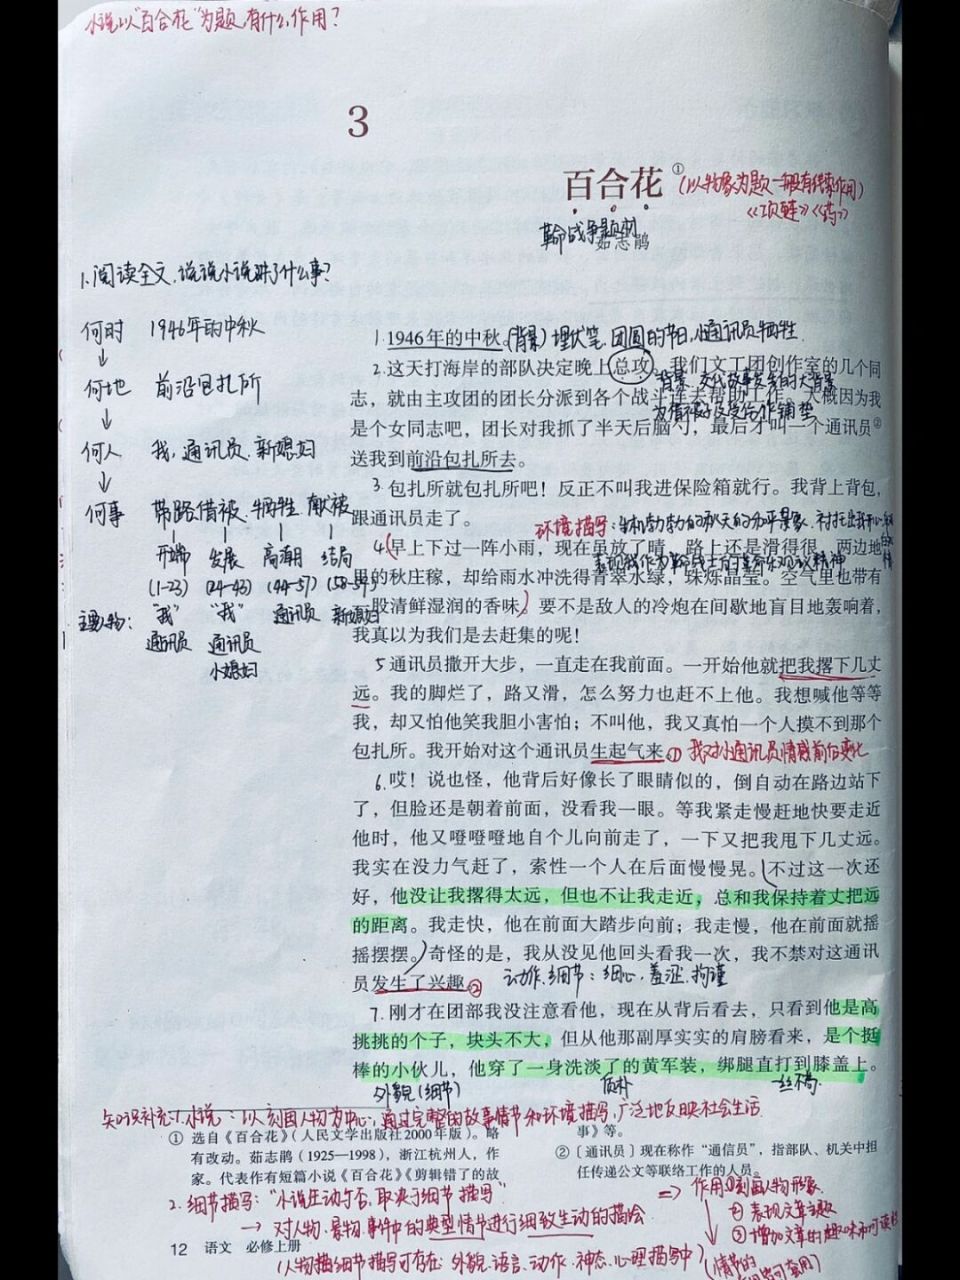 小说以"百合花"为题,有什么作用?
3
百合花①
(以物象为题一般有线索作用)
《项链》《药》
革命战争题材
茹志鹃
1.阅读全文,说说小说讲了什么事?
何时 1946年的中秋
↓
何地 前沿包扎所
↓
何人 我,通讯员,新媳妇
↓
何事 带路 借被 牺牲 献被
开端 发展 高潮 结局
(1-23) (24-43) (44-57) (58-59)
主要人物: "我" "我" 通讯员 新媳妇
通讯员 通讯员
小媳妇
1 1946年的中秋。(背景)埋伏笔,团圆的节日,小通讯员牺牲
2.这天打海岸的部队决定晚上总攻。我们文工团创作室的几个同
背景:交代故事发生的大背景
志,就由主攻团的团长分派到各个战斗连去帮助工作。大概因为我
为借被子及受伤作铺垫
是个女同志吧,团长对我抓了半天后脑勺,最后才叫一个通讯员②
送我到前沿包扎所去。
3 包扎所就包扎所吧!反正不叫我进保险箱就行。我背上背包,
跟通讯员走了。
环境描写:
4.(早上下过一阵小雨,现在虽放了晴,路上还是滑得很,两边地
里的秋庄稼,却给雨水冲洗得青翠水绿,珠烁晶莹。空气里也带有
一股清鲜湿润的香味。)要不是敌人的冷炮在间歇地盲目地轰响着,
我真以为我们是去赶集的呢!
5 通讯员撒开大步,一直走在我前面。一开始他就把我撂下几丈
远。我的脚烂了,路又滑,怎么努力也赶不上他。我想喊他等等
我,却又怕他笑我胆小害怕;不叫他,我又真怕一个人摸不到那个
包扎所。我开始对这个通讯员生起气来。① 我对小通讯员情感前后变化
6.哎!说也怪,他背后好像长了眼睛似的,倒自动在路边站下
了,但脸还是朝着前面,没看我一眼。等我紧走慢赶地快要走近
他时,他又噔噔噔地自个儿向前走了,一下又把我甩下几丈远。
我实在没力气赶了,索性一个人在后面慢慢晃。(不过这一次还
好,他没让我撂得太远,但也不让我走近,总和我保持着丈把远
的距离。我走快,他在前面大踏步向前;我走慢,他在前面就摇
摇摆摆。)奇怪的是,我从没见他回头看我一次,我不禁对这通讯
员发生了兴趣。② 动作,细节:细心,羞涩,拘谨
7.刚才在团部我没注意看他,现在从背后看去,只看到他是高
挑挑的个子,块头不大,但从他那副厚实实的肩膀看来,是个挺
棒的小伙儿,他穿了一身洗淡了的黄军装,绑腿直打到膝盖上。
外貌(细节) 质朴 一丝不苟
知识补充:1.小说:以刻画人物为中心,通过完整的故事情节和环境描写,广泛地反映社会生活
① 选自《百合花》(人民文学出版社2000年版)。略
有改动。茹志鹃(1925—1998),浙江杭州人,作
家。代表作有短篇小说《百合花》《剪辑错了的故
事》等。
②〔通讯员〕现在称作"通信员",指部队、机关中担
任传递公文等联络工作的人员。
2.细节描写:"小说生动与否,取决于细节描写"
→ 对人物、景物、事件中的典型情节进行细致生动的描绘
(人物描细节描写可存在:外貌,语言,动作,神态,心理描写中)
⇒ 作用:①刻画人物形象
② 表现文章主题
③ 增加文章的趣味和可读性
(情节的
12 语文 必修上册